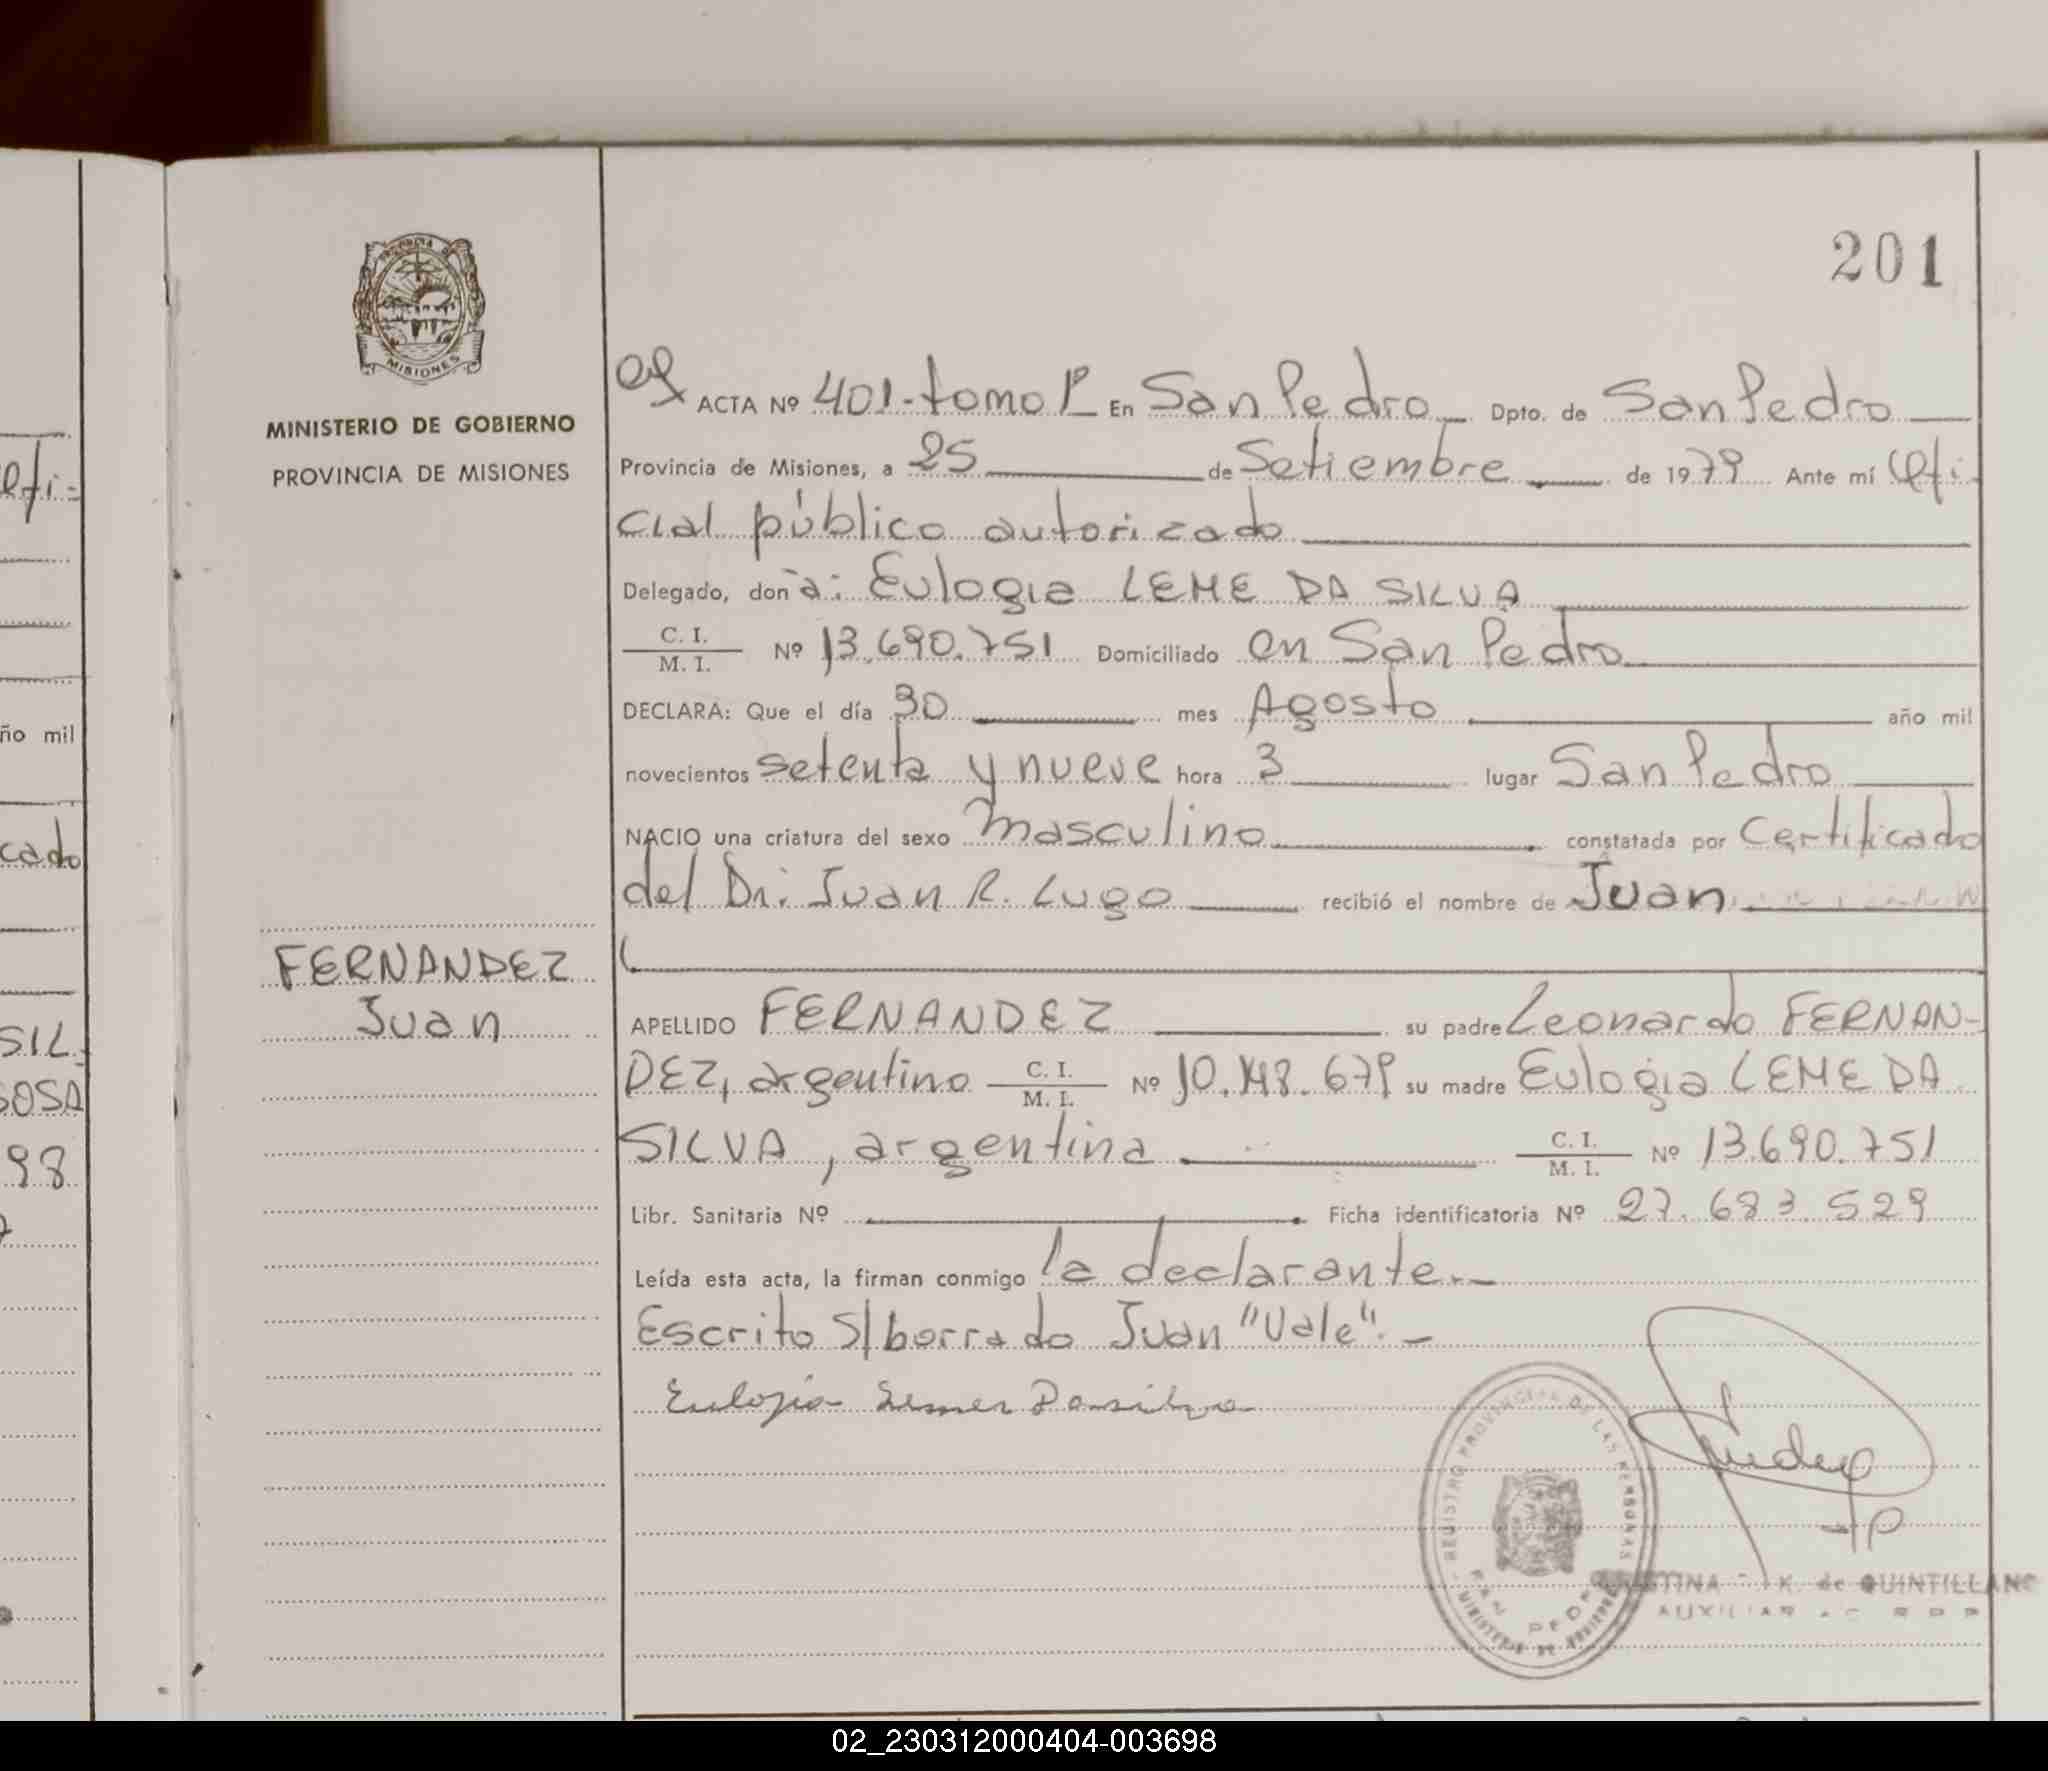 201
MINISTERIO DE GOBIERNO
PROVINCIA DE MISIONES
MISIONES
ACTA Nº 401-tomo 1º En San Pedro Dpto. de San Pedro
Provincia de Misiones, a 25 de Setiembre de 1979 Ante mí Ofi-
cial público autorizado
Delegado, don a: Eulogia LEME DA SILVA
C. I.
M. I. Nº 13.690.751 Domiciliado en San Pedro
DECLARA: Que el día 30 mes Agosto año mil
novecientos setenta y nueve hora 3 lugar San Pedro
NACIO una criatura del sexo masculino constatada por Certificado
del Dr. Juan R. Lugo recibió el nombre de Juan
FERNANDEZ
Juan
APELLIDO FERNANDEZ su padre Leonardo FERNAN-
DEZ, argentino C. I.
M. I. Nº 10.148.679 su madre Eulogia LEME DA
SILVA, argentina C. I.
M. I. Nº 13.690.751
Libr. Sanitaria Nº Ficha identificatoria Nº 27.683.529
Leída esta acta, la firman conmigo la declarante.-
Escrito S/borrado Juan "Vale".-
Eulogia Lemes Dasilva
REGISTRO PROVINCIAL DE LAS PERSONAS
MINISTERIO DE GOBIERNO
SAN PEDRO
K. de QUINTILLANO
AUXILIAR
ofi-
ño mil
cado
SIL-
SOSA
98
02_230312000404-003698